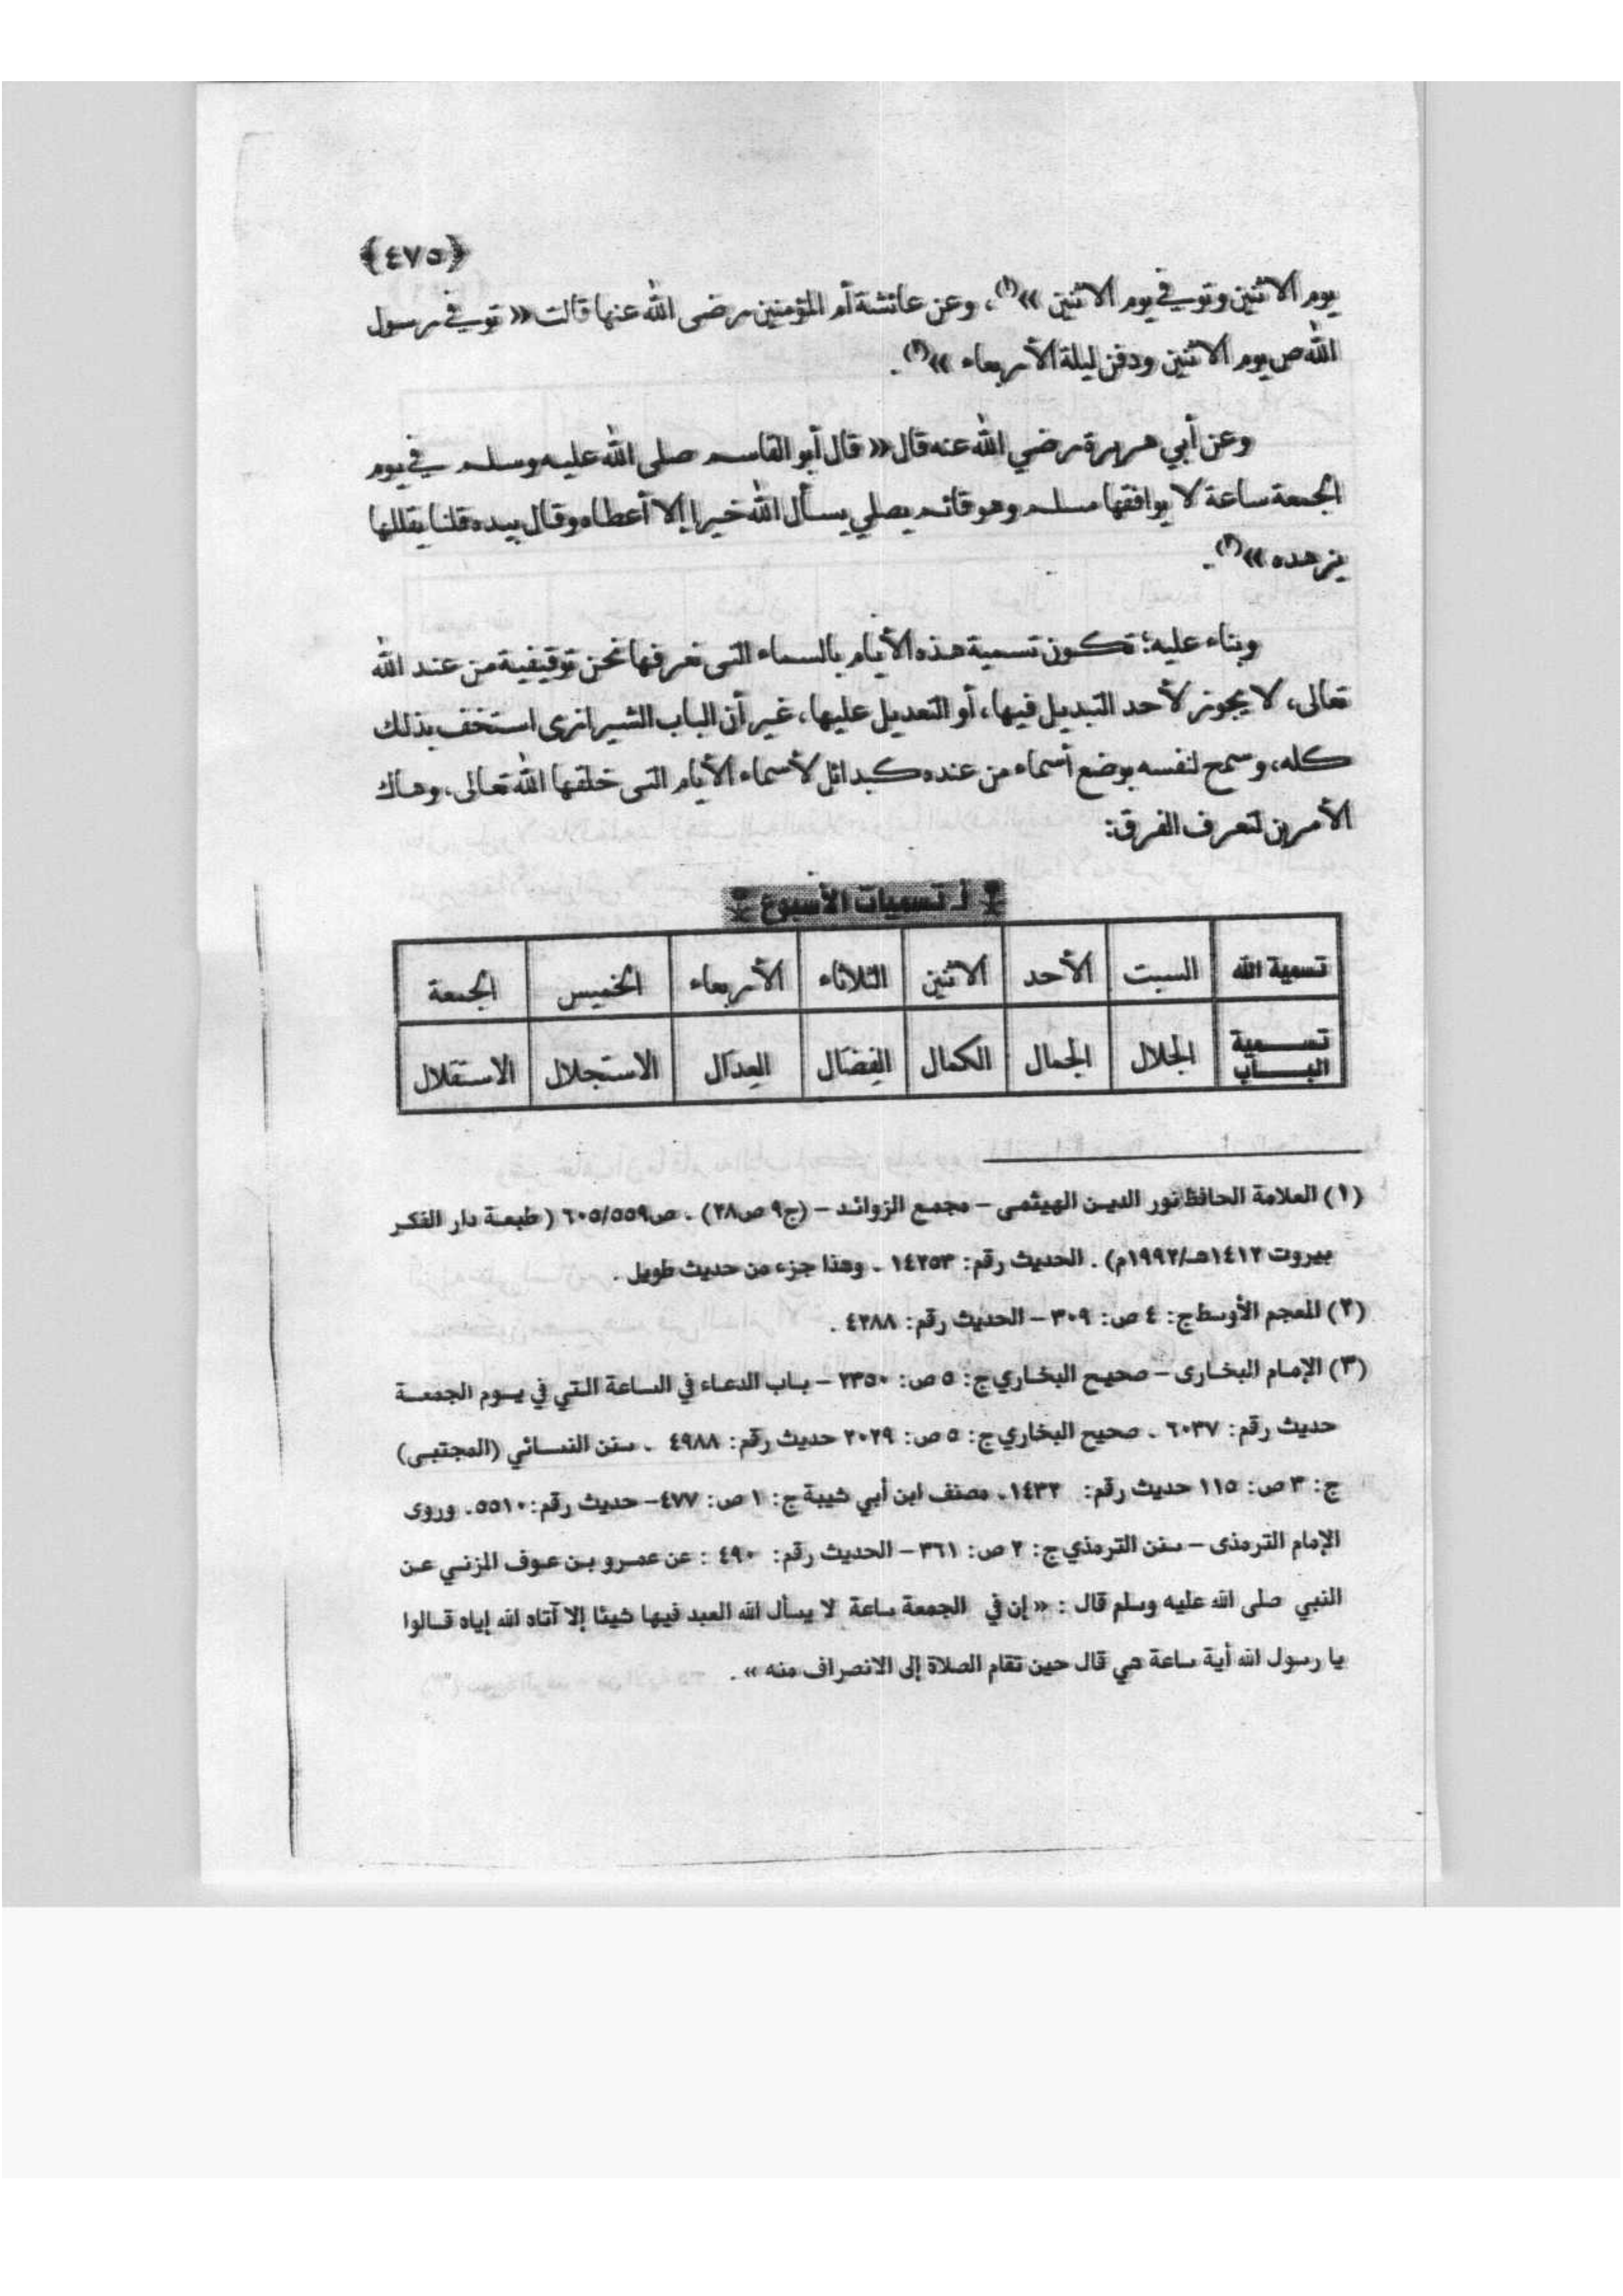 ﴿٤٧٥﴾
يوم الاثنين وتوفي يوم الاثنين »(١)، وعن عائشة أم المؤمنين رضى الله عنها قالت « توفي رسول
الله ص يوم الاثنين ودفن ليلة الأربعاء »(٢).
وعن أبي هريرة رضي الله عنه قال « قال أبو القاسم صلى الله عليه وسلم في يوم
الجمعة ساعة لا يوافقها مسلم وهو قائم يصلي يسأل الله خيرا إلا أعطاه وقال بيده قلنا يقللها
يزهده »(٣).
وبناء عليه؛ تكون تسمية هذه الأيام بالسماء التى نعرفها نحن توقيفية من عند الله
تعالى، لا يجوز لأحد التبديل فيها، أو التعديل عليها، غير أن الباب الشيرازى استخف بذلك
كله، وسمح لنفسه بوضع أسماء من عنده كبدائل لأسماء الأيام التى خلقها الله تعالى، وهاك
الأمرين لتعرف الفرق:
أـ تسميات الأسبوع
تسمية الله السبت الأحد الاثنين الثلاثاء الأربعاء الخميس الجمعة
تسمية الباب الجلال الجمال الكمال الفِضَال العِدَال الاستجلال الاستقلال
(١) العلامة الحافظ نور الدين الهيثمى – مجمع الزوائد – (ج٩ ص٢٨) . ص٦٠٥/٥٥٩ ( طبعة دار الفكر
بيروت ١٤١٢هـ/١٩٩٢م) . الحديث رقم: ١٤٢٥٣ . وهذا جزء من حديث طويل .
(٢) المعجم الأوسط ج: ٤ ص: ٣٠٩ – الحديث رقم: ٤٢٨٨ .
(٣) الإمام البخارى – صحيح البخاري ج: ٥ ص: ٢٣٥٠ – باب الدعاء في الساعة التي في يوم الجمعة
حديث رقم: ٦٠٣٧ . صحيح البخاري ج: ٥ ص: ٢٠٢٩ حديث رقم: ٤٩٨٨ . سنن النسائي (المجتبى)
ج: ٣ ص: ١١٥ حديث رقم: ١٤٣٢. مصنف ابن أبي شيبة ج: ١ ص: ٤٧٧– حديث رقم: ٥٥١٠. وروى
الإمام الترمذى – سنن الترمذي ج: ٢ ص: ٣٦١ – الحديث رقم: ٤٩٠ : عن عمرو بن عوف المزني عن
النبي صلى الله عليه وسلم قال : « إن في الجمعة ساعة لا يسأل الله العبد فيها شيئا إلا آتاه الله إياه قالوا
يا رسول الله أية ساعة هي قال حين تقام الصلاة إلى الانصراف منه » .